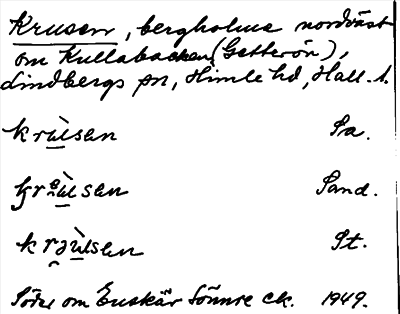 Krusen, bergholme nordväst
om Kullabacken (Getterön),
Lindbergs sn, Himle hd, Hall. l.
krùsen Sa.
krùsen Sand.
krəùsen St.
Söder om Enskär Sönnre ek. 1949.